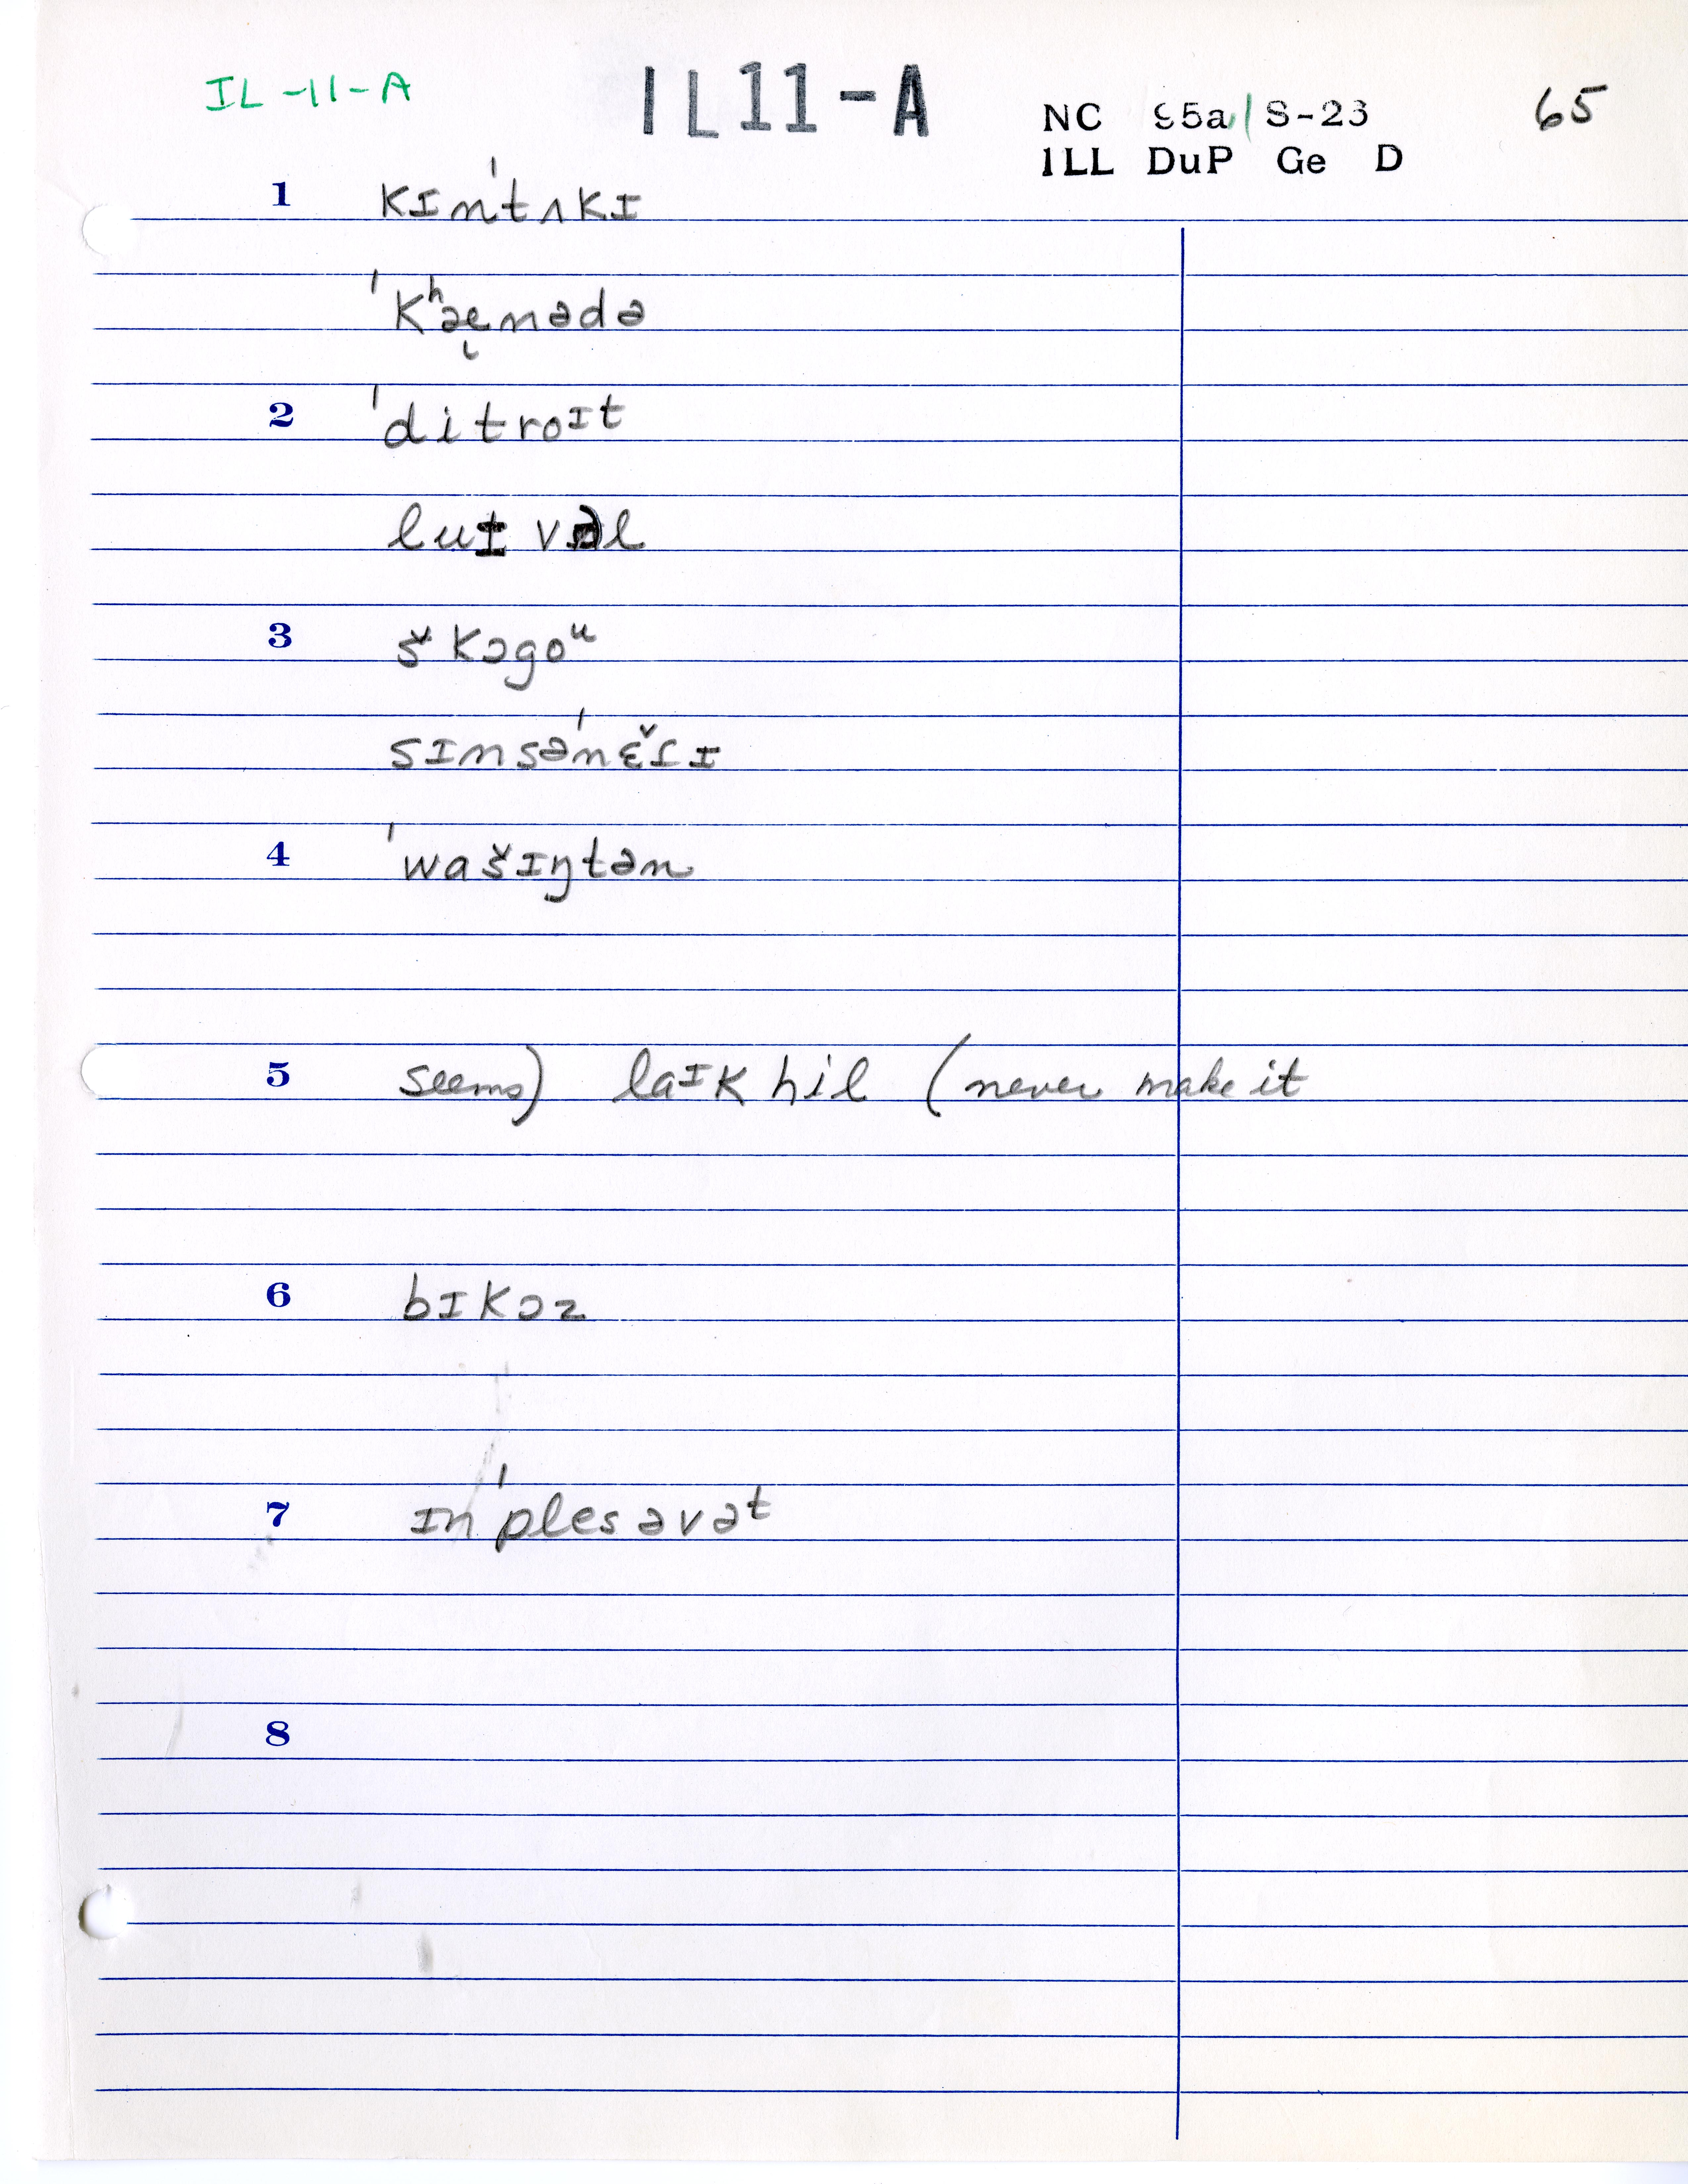 IL-11-A
IL11-A
NC 95a/S-23
65
ILL DuP Ge D
1 kɪnˈtʌkɪ
ˈkʰæ̨nədə
2 ˈditroɪt
luɪvəl
3 škɔgoᵘ
sɪnsəˈnɛ̌ɾɪ
4 ˈwašɪŋtən
5 seems) laɪk hil (never make it
6 bɪkɔz
7 ɪnˈplesəvətᵗ
8